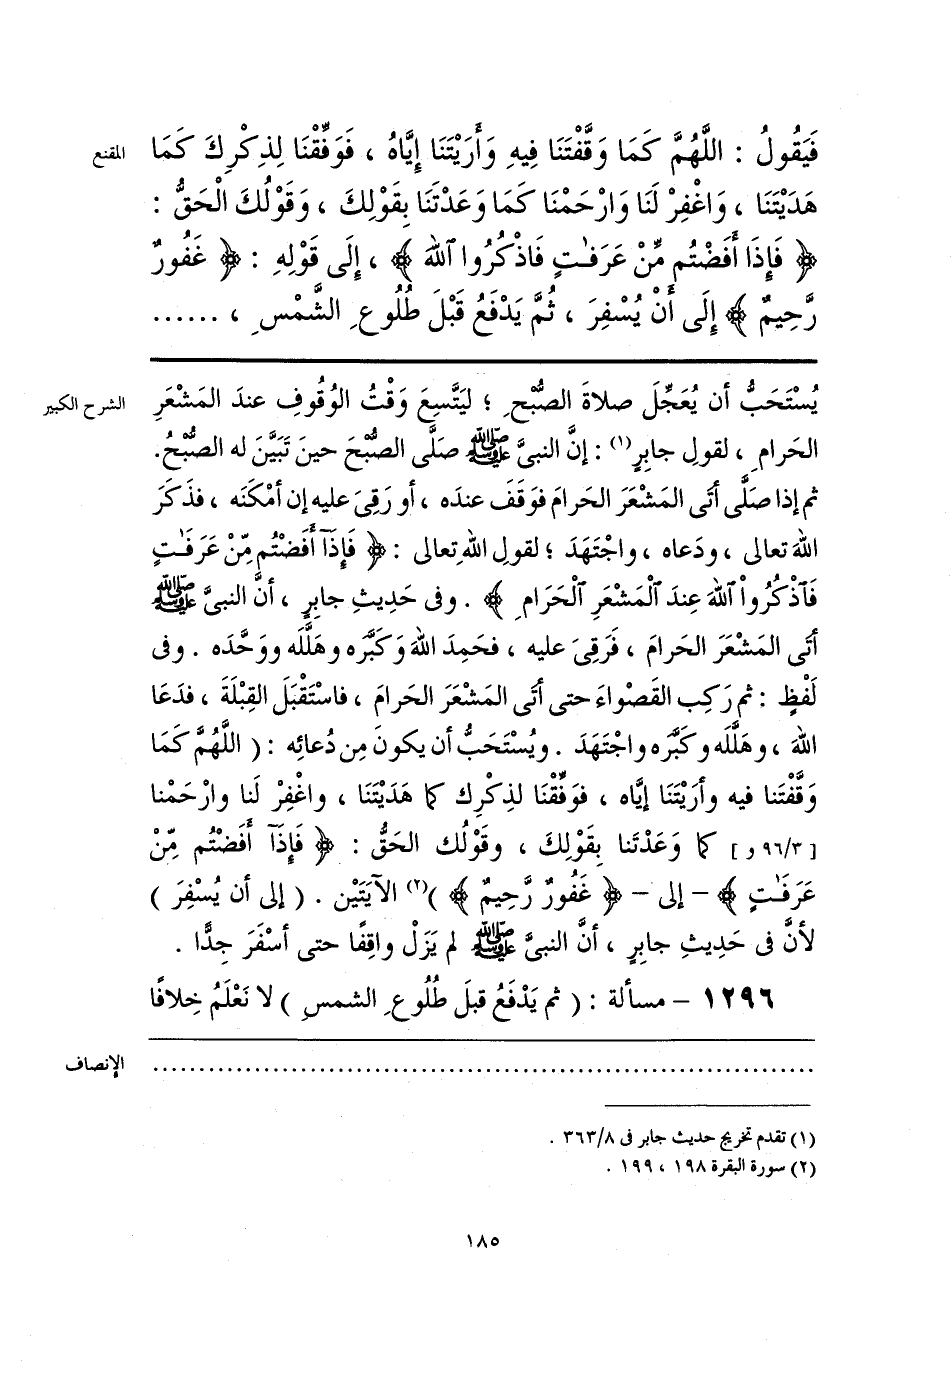 المقنع
فَيَقُولُ : اللَّهُمَّ كَمَا وَقَّفْتَنَا فِيهِ وَأَرَيْتَنَا إِيَّاهُ ، فَوَفِّقْنَا لِذِكْرِكَ كَمَا
هَدَيْتَنَا ، وَاغْفِرْ لَنَا وَارْحَمْنَا كَمَا وَعَدْتَنَا بِقَوْلِكَ ، وَقَوْلُكَ الْحَقُّ :
﴿ فَإِذَا أَفَضْتُم مِّنْ عَرَفَٰتٍ فَاذْكُرُوا ٱللهَ ﴾ ، إِلَى قَوْلِهِ : ﴿ غَفُورٌ
رَّحِيمٌ ﴾ إِلَى أَنْ يُسْفِرَ ، ثُمَّ يَدْفَعُ قَبْلَ طُلُوعِ الشَّمْسِ ، ......
الشرح الكبير
يُسْتَحَبُّ أن يُعَجِّلَ صلاةَ الصُّبْحِ ؛ ليَتَّسِعَ وَقْتُ الوُقُوفِ عندَ المَشْعَرِ
الحَرامِ ، لقولِ جابِرٍ(١) : إنَّ النبىَّ ﷺ صَلَّى الصُّبْحَ حينَ تَبَيَّنَ له الصُّبْحُ.
ثم إذا صَلَّى أتَى المَشْعَرَ الحَرامَ فوَقَفَ عندَه ، أو رَقِىَ عليه إن أمْكَنَه ، فذَكَرَ
اللهَ تعالى ، ودَعاه ، واجْتَهَدَ ؛ لقولِ اللهِ تعالى : ﴿ فَإِذَآ أَفَضْتُم مِّنْ عَرَفَٰتٍ
فَٱذْكُرُواْ ٱللهَ عِندَ ٱلْمَشْعَرِ ٱلْحَرَامِ ﴾ . وفى حَدِيثِ جابِرٍ ، أنَّ النبىَّ ﷺ
أتَى المَشْعَرَ الحَرامَ ، فَرَقِىَ عليه ، فحَمِدَ اللهَ وَكَبَّرَه وهَلَّلَه ووَحَّدَه . وفى
لَفْظٍ : ثم رَكِب القَصْواءَ حتى أتَى المَشْعَرَ الحَرامَ ، فاسْتَقْبَلَ القِبْلَةَ ، فدَعَا
اللهَ ، وهَلَّلَه وكَبَّرَه واجْتَهَدَ . ويُسْتَحَبُّ أن يكونَ مِن دُعائِه : ( اللَّهُمَّ كَمَا
وَقَّفْتَنا فيه وأرَيْتَنَا إيَّاه ، فوَفِّقْنَا لذِكْرِك كما هَدَيْتَنَا ، واغْفِرْ لَنا وارْحَمْنا
[ ٩٦/٣ و ] كما وَعَدْتَنا بِقَوْلِكَ ، وقَوْلُك الحَقُّ : ﴿ فَإِذَآ أَفَضْتُم مِّنْ
عَرَفَٰتٍ ﴾ – إلى – ﴿ غَفُورٌ رَّحِيمٌ ﴾ )(٢) الآيَتَيْن . ( إلى أن يُسْفِرَ )
لأنَّ فى حَدِيثِ جابرٍ ، أنَّ النبىَّ ﷺ لم يَزَلْ واقِفًا حتى أسْفَرَ جِدًّا .
١٢٩٦ – مسألة : ( ثم يَدْفَعُ قبلَ طُلُوعِ الشمسِ ) لا نَعْلَمُ خِلافًا
الإنصاف
......................................................................
(١) تقدم تخريج حديث جابر فى ٣٦٣/٨ .
(٢) سورة البقرة ١٩٨ ، ١٩٩ .
١٨٥